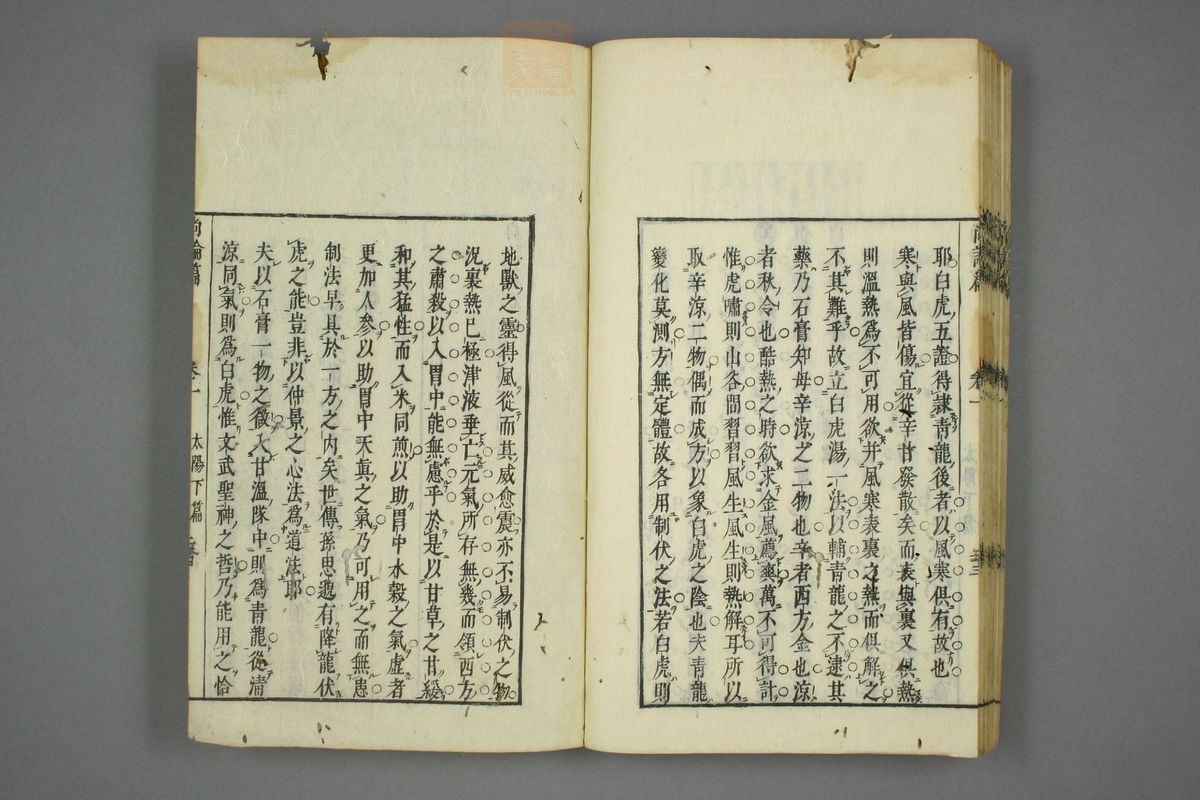 耶白虎五證得隷青龍後者以風寒俱有故也
寒與風皆傷宜從辛甘發散矣而表與裏又俱熱
則溫熱爲不可用欲并風寒表裏之熱而俱解之
不其難乎故立白虎湯一法以輔青龍之不逮其
藥乃石膏知母辛涼之二物也辛者西方金也涼
者秋令也酷熱之時欲求金風薦爽萬不可得計
惟虎嘯則山谷間習習風生風生則熱解耳所以
取辛涼二物偶而成方以象白虎之陰也夫青龍
變化莫測方無定體故各用制伏之法若白虎則
地獸之靈得風從而其威愈震亦不易制伏之物
況裏熱已極津液垂亡元氣所存無幾而領西方
之肅殺以入胃中能無慮乎於是以甘草之甘緩
和其猛性而入米同煎以助胃中水穀之氣虛者
更加人參以助胃中天眞之氣乃可用之而無患
制法早具於一方之內矣世傳孫思邈有降龍伏
虎之能豈非以仲景之心法爲道法耶
夫以石膏一物之微入甘溫隊中則爲青龍從清
涼同氣則爲白虎惟文武聖神之哲乃能用之恰
尚論篇 卷一 太陽下篇